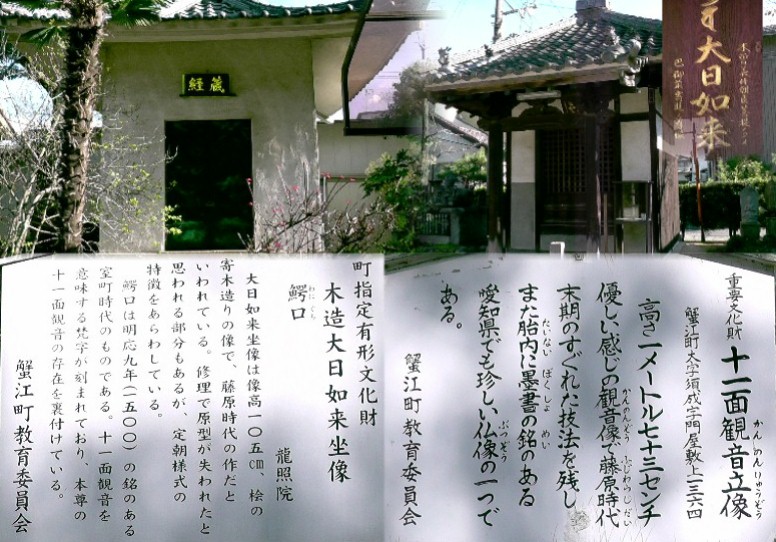 蔵経
大日如来
重要文化財 十一面観音立像
かんのんりゅうぞう
蟹江町大字須成字門屋敷上一三六四
高さ一メートル七十三センチ
優しい感じの観音像で藤原時代
かんのんぞう ふじわらじだい
末期のすぐれた技法を残し
また胎内に墨書の銘のある
たいない ぼくしょ めい
愛知県でも珍しい仏像の一つで
ぶつぞう
ある。
蟹江町教育委員会
町指定有形文化財
木造大日如来坐像
鰐口
わにぐち
龍照院
大日如来坐像は像高一〇五cm、桧の
寄木造りの像で、藤原時代の作だと
いわれている。修理で原型が失われたと
思われる部分もあるが、定朝様式の
特徴をあらわしている。
鰐口は明応九年(一五〇〇)の銘のある
室町時代のものである。十一面観音を
意味する梵字が刻まれており、本尊の
十一面観音の存在を裏付けている。
蟹江町教育委員会